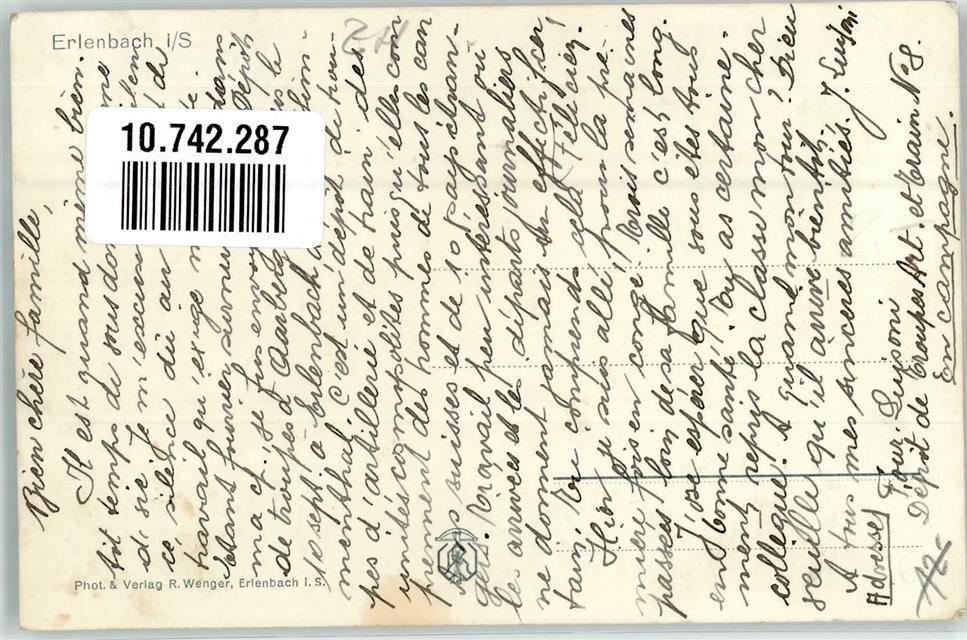 Erlenbach i/S
10.742.287
ZH
Bien chère famille,
Il est quand même bien
tôt temps de vous don
de sie. Je m'excuse
ce silence dû au de
travail qu'exige
étant fourrier surnu dans
ma cp. je fus envoy Dépôt
de troupes d'Aarberg le
10 sept. à Erlenbach Sim-
menthal. C'est un dépôt de trou-
pes d'artillerie et de train, des
unités compositées puisqu'elles com
prennent des hommes de tous les can
tons suisses et de 10 pays étran-
gers. Travail peu intéressant où
les arrivées et les départs journaliers
ne donnent jamais un effectif cer
tain. Tu comprends cela Félicien.
Hier je suis allé pour la pre-
mière fois en congé. Trois semaines
passées loin de sa famille c'est long.
J'ose espérer que vous êtes tous
en bonne santé. Toy as certaine-
ment repris la classe mon cher
collègue. A quand mon tour? Dieu
veuille qu'il arrive bientôt.
A tous mes sincères amitiés. J. Luisoni
Adresse Four. Luisoni
Dépôt de Troupes Art. et train No 3.
En campagne.
Phot. & Verlag R. Wenger, Erlenbach i. S.